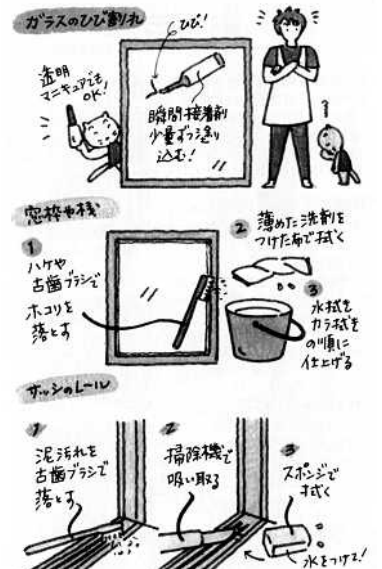 ガラスのひび割れ
ひび!
透明
マニキュアでも
OK!
瞬間接着剤
少量ずつ塗り
込む!
窓枠や桟
1
ハケや
古歯ブラシで
ホコリを
落とす
2 薄めた洗剤を
つけた布で拭く
3
水拭き
カラ拭き
の順に
仕上げる
サッシのレール
1
泥汚れを
古歯ブラシで
落とす
2
掃除機で
吸い取る
3
スポンジで
拭く
水をつけて!